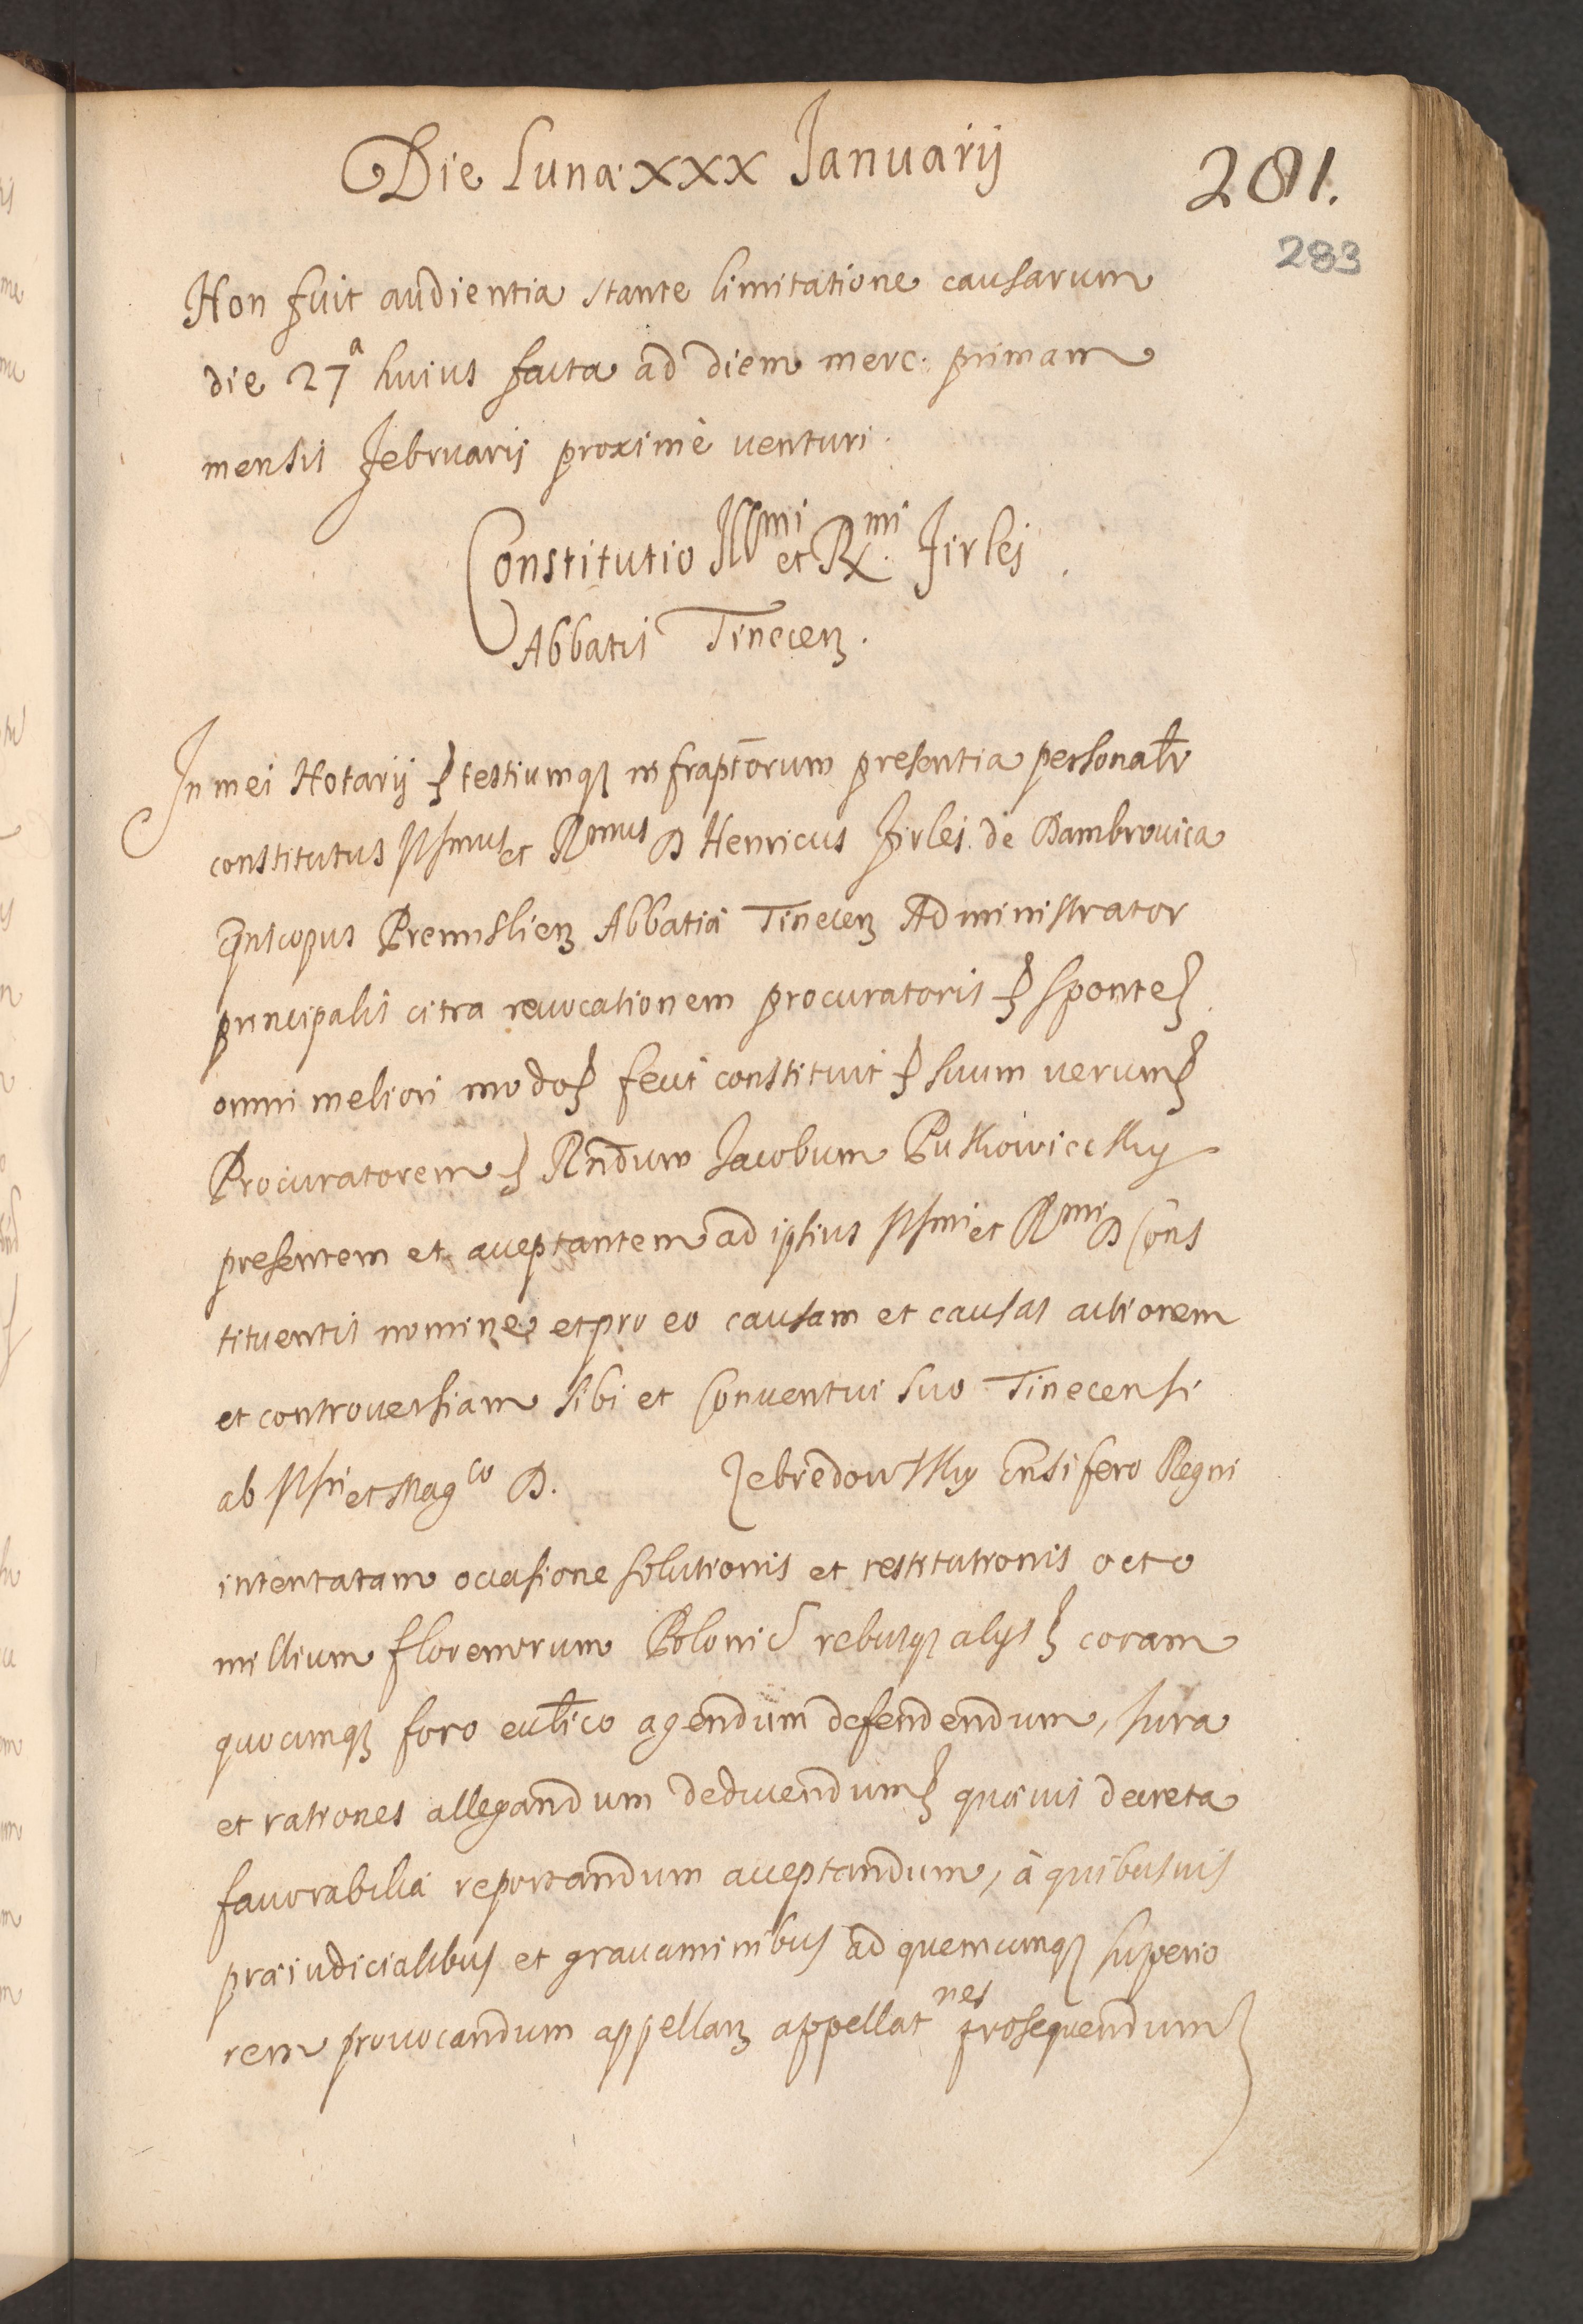 Die Lunæ XXX Januarij
281.
283
Non fuit audientia stante limitatione causarum
die 27ª huius facta ad diem merc: primam
mensis Februarij proximè venturi.
Constitutio Illmi et Rx.mi Firlej
Abbatis Tinecen.
In mei Notarij testiumq infraptorum presentia personalr
constitutus Illmus et Rmus D Henricus Firlei de Dambrovica
Episcopus Premislien Abbatiæ Tinecen Administrator
principalis citra revocationem procuratoris sponte
omni meliori modo fecit constituit suum verum
Procuratorem Rndum Jacobum Putkowiccky
presentem et acceptantem ad ipsius Illmi et Rmi D Cons
tituentis nomine et pro eo causam et causas actionem
et controversiam sibi et Conventui suo Tinecensi
ab Illri et Magco D. Zebredowsky Ensifero Regni
intentatam occasione solutionis et restitutionis octo
millium florenorum Polonic rebusq alijs coram
quocumq foro ecclico agendum defendendum, iura
et rationes allegandum deducendum quævis decreta
favorabilia reportandum acceptandum, à quibusvis
præiudicialibus et gravaminibus ad quemcumq superio
rem provocandum appellan appellatnes prosequendum